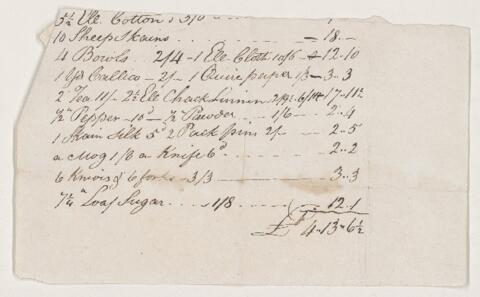 5½ Ell Cotton 3/6
10 Sheep Skains - - - - 18..-
4 Bowls 2/4 - 1 Ell Cloth 10/6 - 12..10
1 Yd Callico - 2/- 1 Quire paper 1/3 - 3..3
2 Tea 11/- 2½ Ell Chack Linnin 17..11½
½ Pepper - 10d - ½ Powder 1/6 - - 2..4
1 Skain Silk 5d 2 Pack pins 2/- - - 2..5
a Mog 1/8 a Knife 6d - - - 2..2
6 Knivs & 6 forks - 3/3 - - - 3..3
7¼ Loaf Sugar - - - 1/8 - - - 12..1
£ 4..13..6½